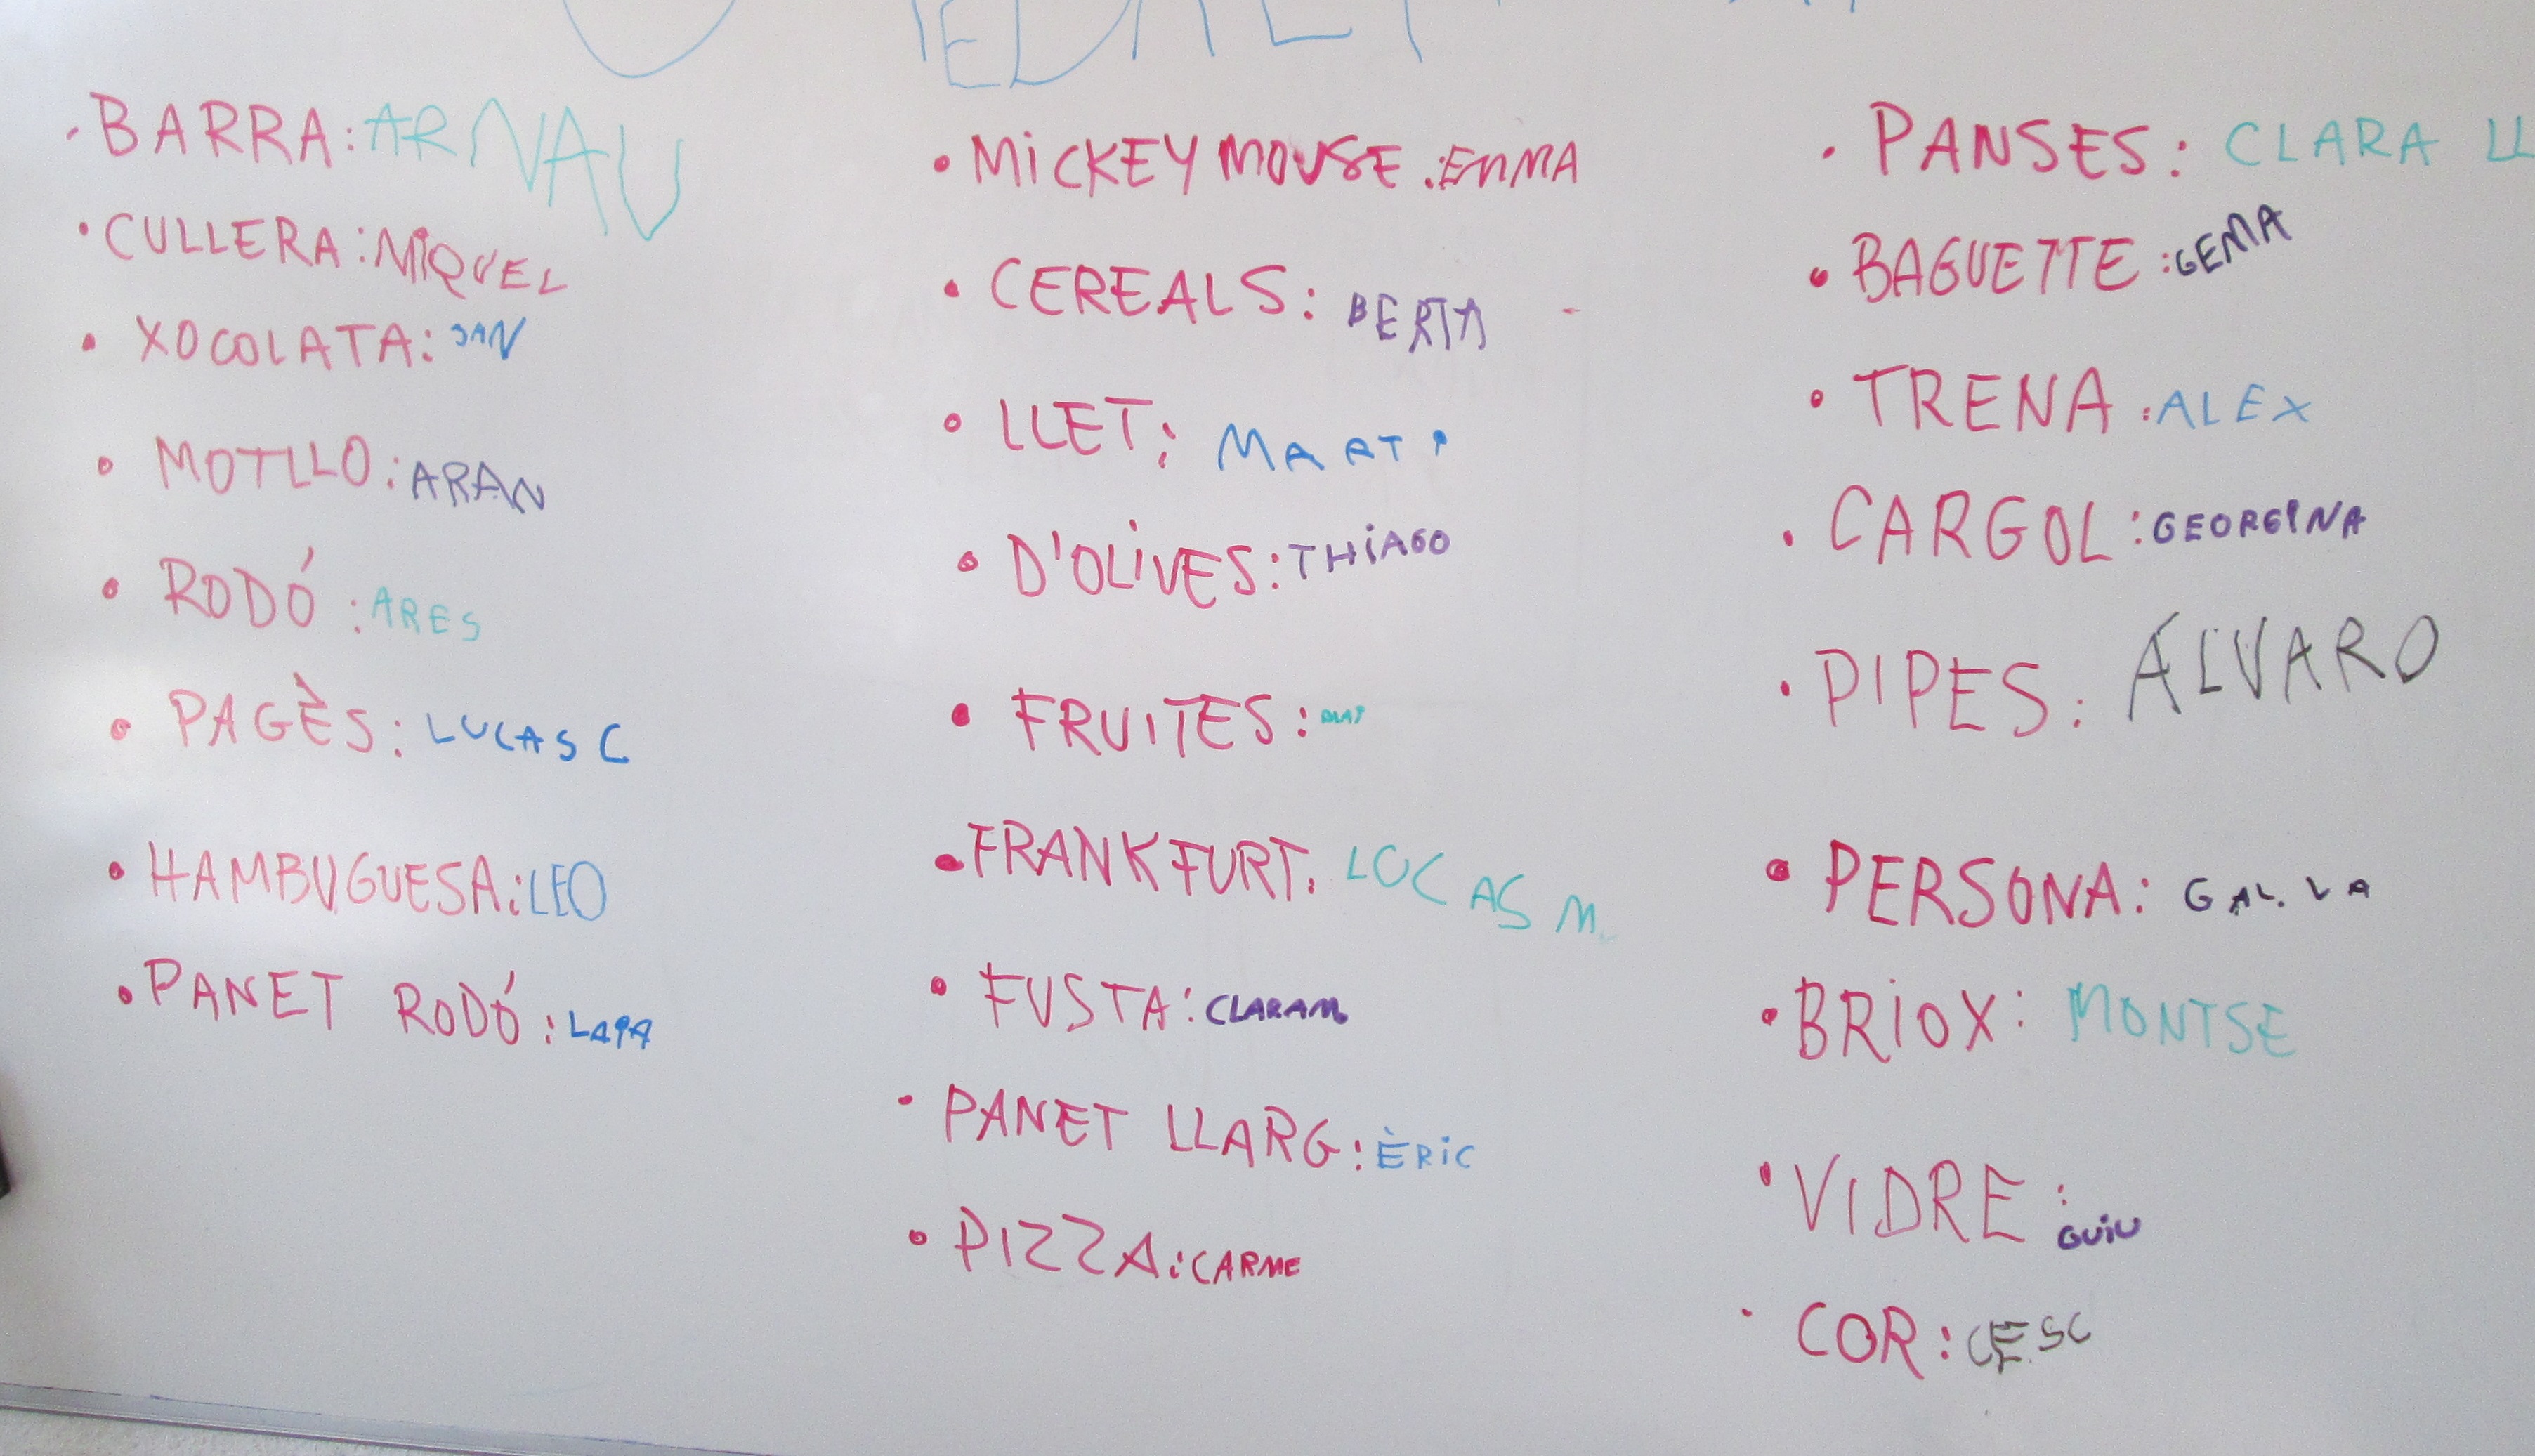 · BARRA: ARNAU
· CULLERA: MIQUEL
· XOCOLATA: JAN
· MOTLLO: ARAN
· RODÓ: ARES
· PAGÈS: LUCAS C
· HAMBUGUESA: LEO
· PANET RODÓ:
· MICKEY MOUSE: EMMA
· CEREALS: BERTA
· LLET:
· D'OLIVES: THIAGO
· FRUITES:
· FRANKFURT: LUCAS M.
· FUSTA: CLARA M.
· PANET LLARG: ÈRIC
· PIZZA: CARME
· PANSES: CLARA LL
· BAGUETTE: GEMMA
· TRENA: ALEX
· CARGOL: GEORGINA
· PIPES: ÁLVARO
· PERSONA:
· BRIOX: MONTSE
· VIDRE: GUIU
· COR: CESC